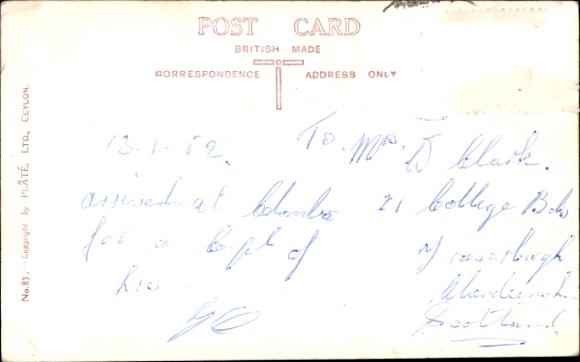 POST CARD
BRITISH MADE
CORRESPONDENCE ADDRESS ONLY
No. 83. - Copyright by PLÂTÉ, LTD., CEYLON.
13-1-52.
arrived at Colombo
for a Couple of
hrs
To. Mrs. D Clark.
21 College B
Fraserburgh
Aberdeensh
Scotland